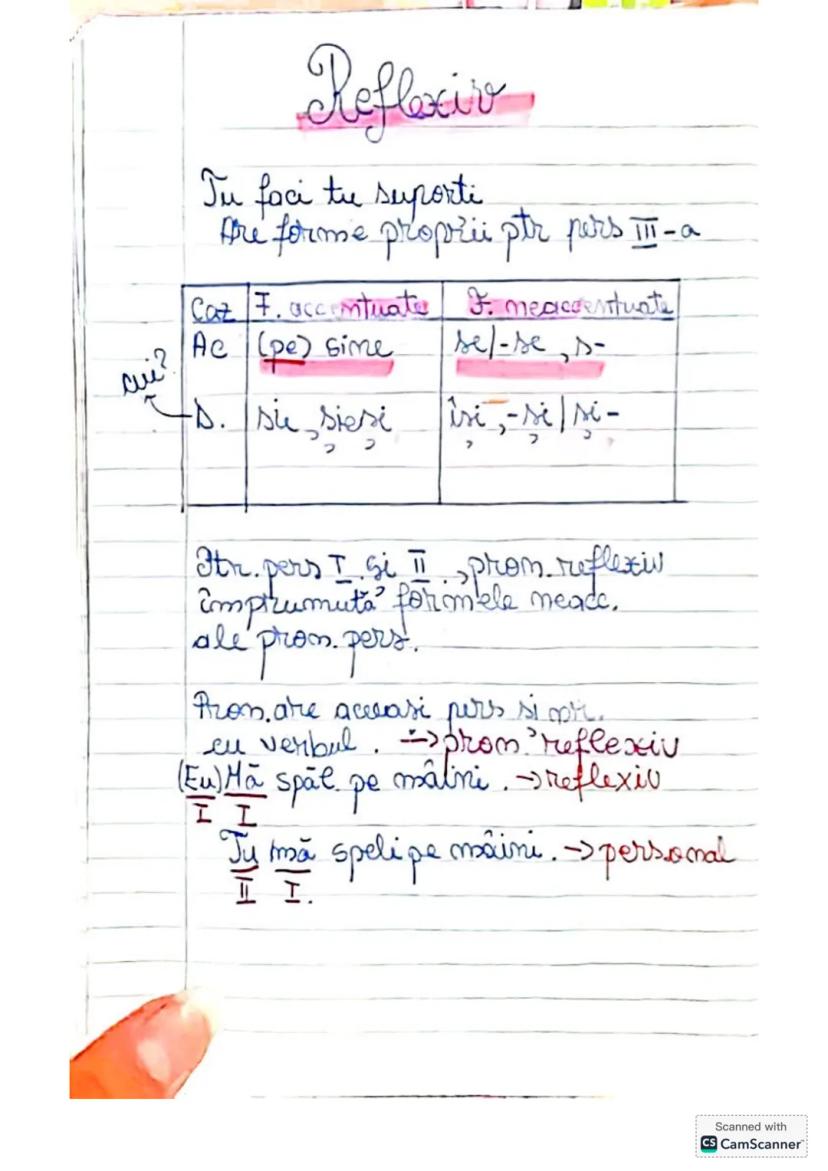 Reflexiv
Tu faci tu suporti
Are forme proprii ptr pers III-a
Caz F. accentuate F. neaccentuate
Ac (pe) sine se/-se, s-
cui?
D. sie, sieși își, -și/și-
Ptr. pers I și II, pron. reflexiv
împrumută formele neacc.
ale pron. pers.
Pron. are aceeasi pers si nr.
cu verbul. → pron. reflexiv
(Eu) Mă spăl pe mâini. → reflexiv
I I
Tu mă speli pe mâini. → personal
II I.
Scanned with
CS CamScanner